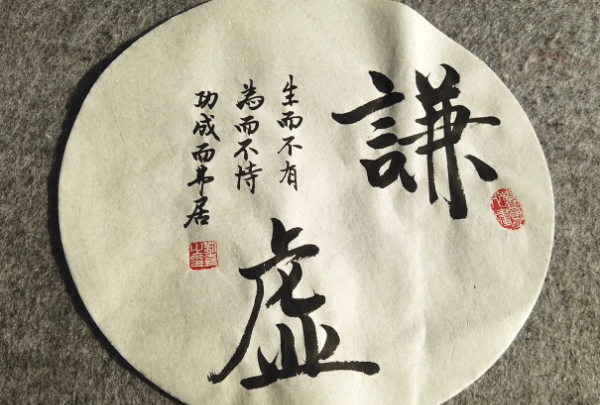 謙
虛
生而不有
為而不恃
功成而弗居